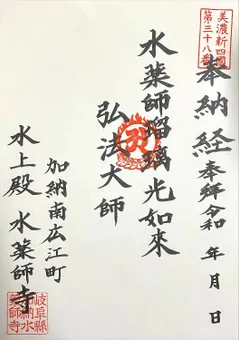 美濃新四國
第三十八番
奉納経
奉拜令和 年 月 日
水薬師瑠璃光如來
弘法大師
加納南広江町
水上殿 水薬師寺
岐阜縣
加納水
薬師寺